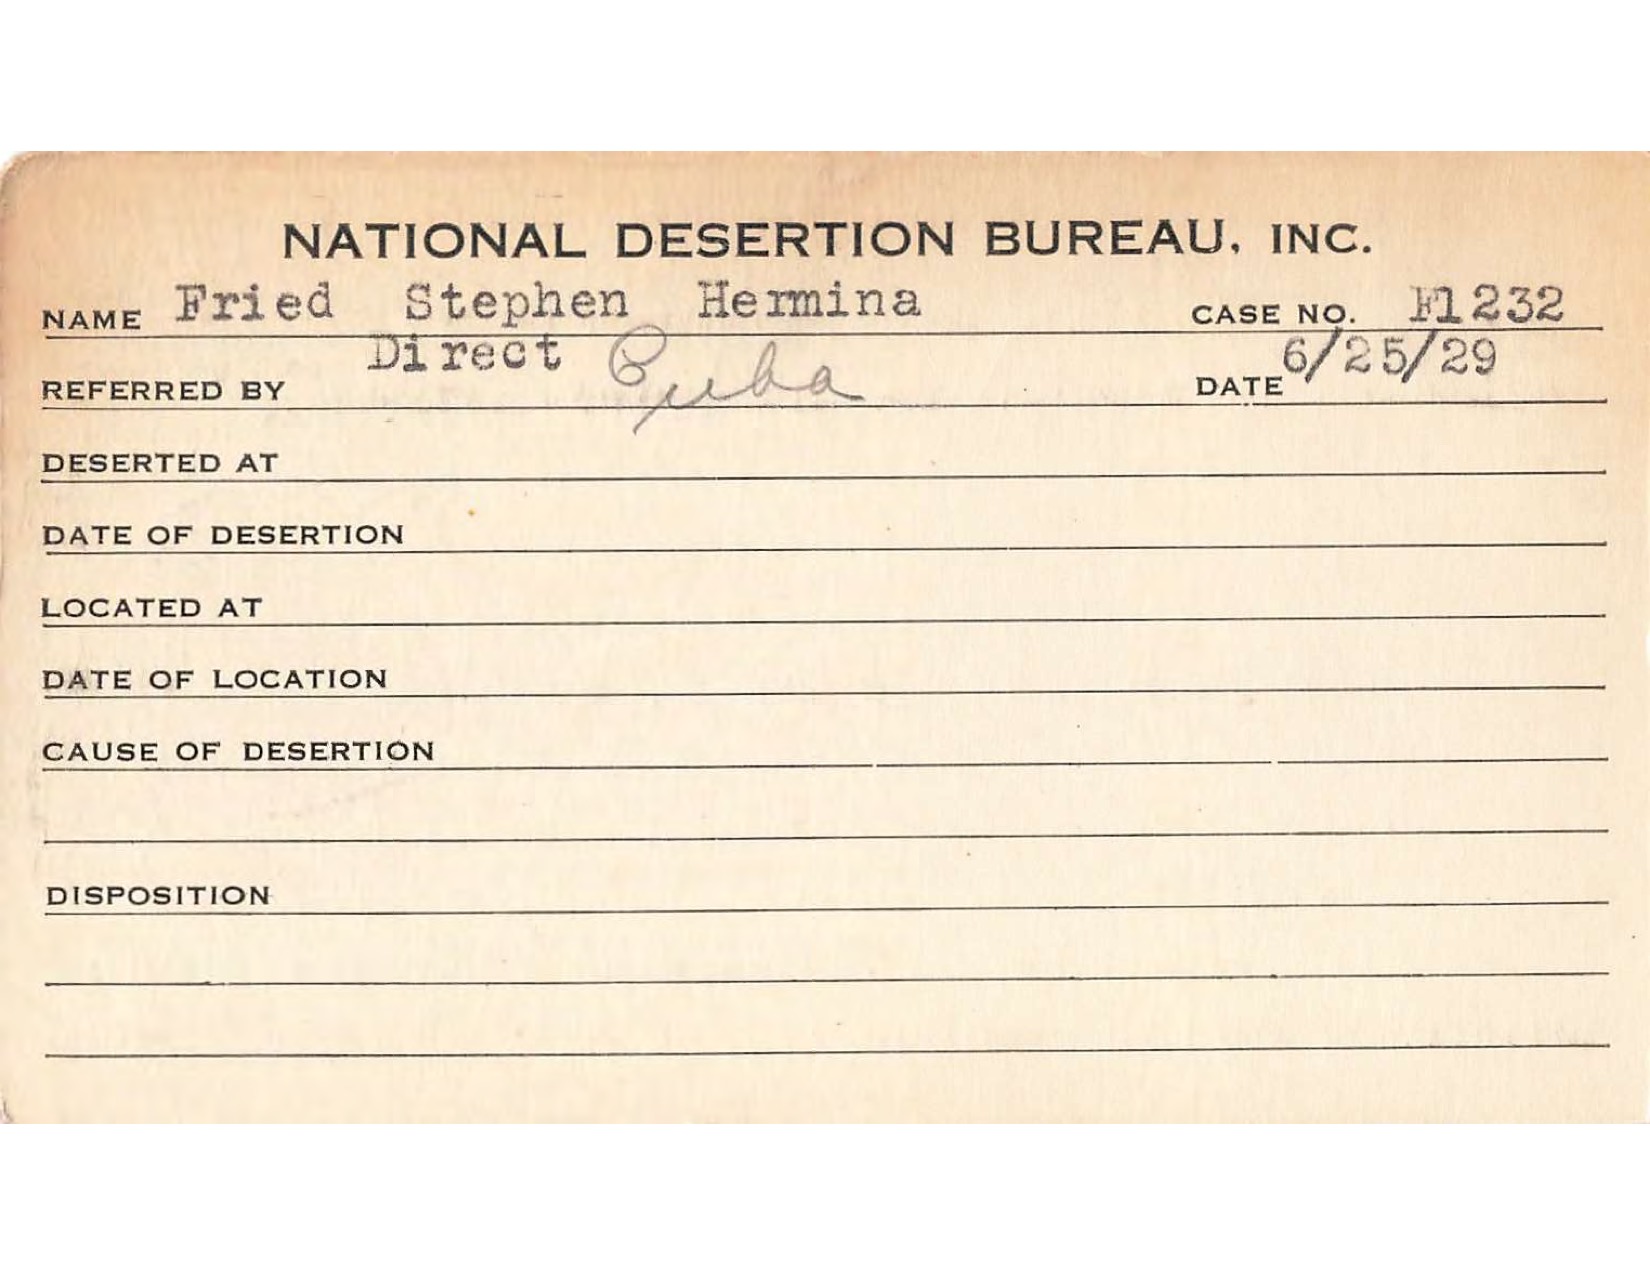 NATIONAL DESERTION BUREAU, INC.
NAME Fried Stephen Hermina CASE NO. F1232
REFERRED BY Direct Cuba DATE 6/25/29
DESERTED AT
DATE OF DESERTION
LOCATED AT
DATE OF LOCATION
CAUSE OF DESERTION
DISPOSITION